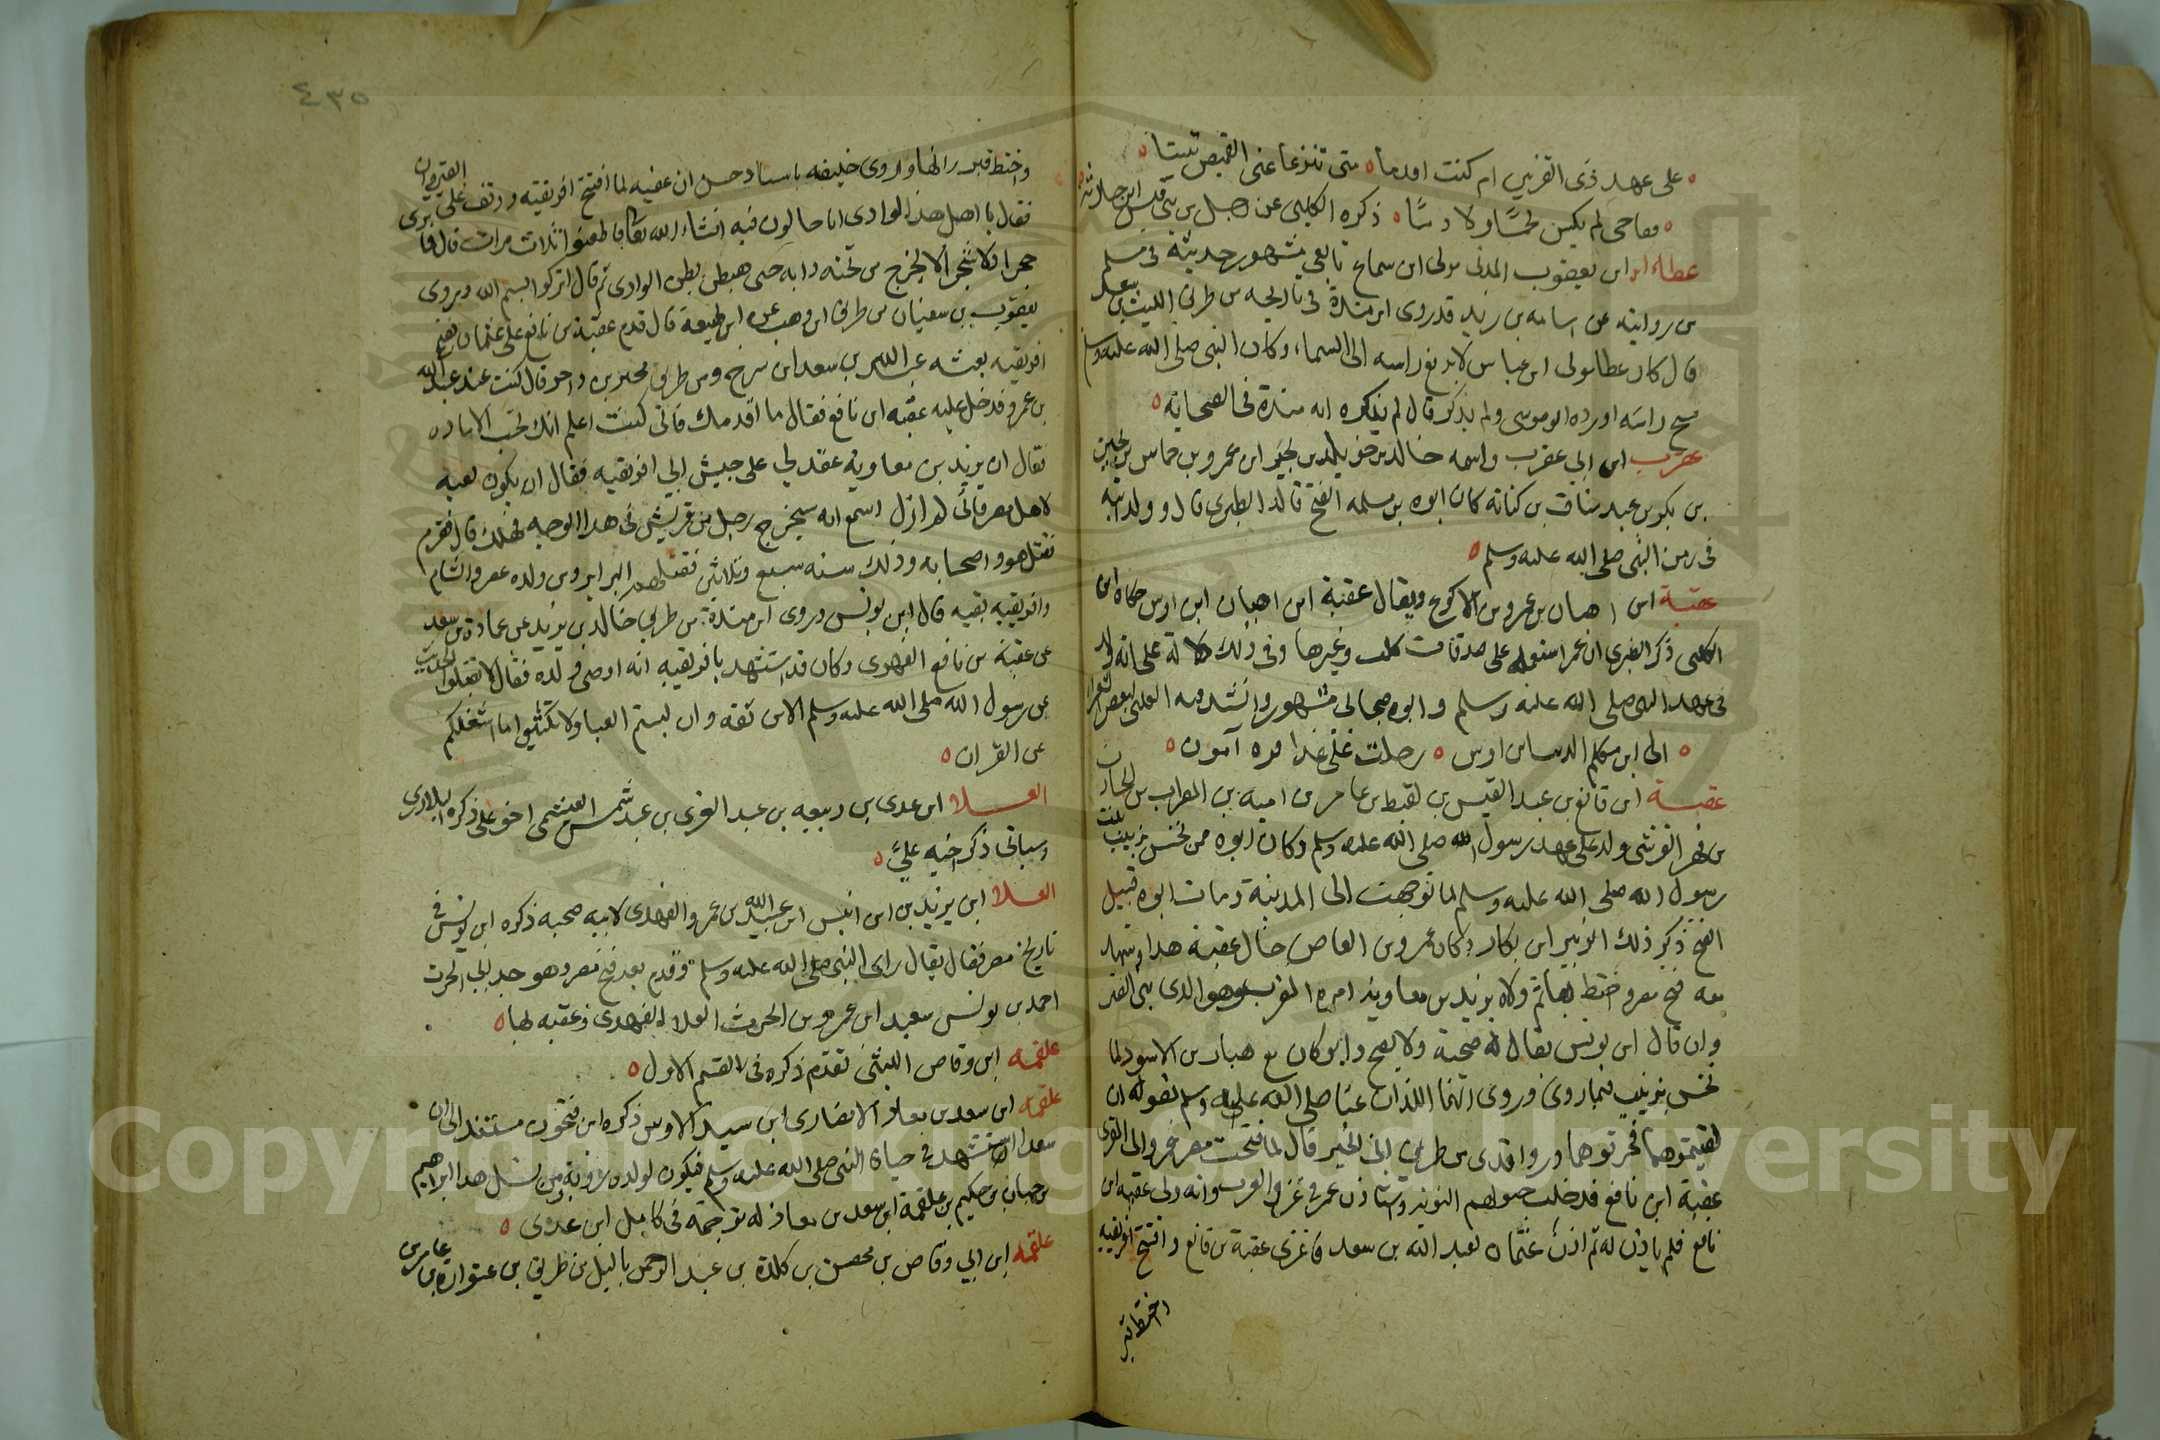 على عهد ذى القرنين ام كنت اقدما متى تنزعا عنى القميص تبينا
ذكره الكلبى عن رجل من بنى قيس ابن حارثة
عطاء ابن يعقوب المدنى مولى ابن سباع تابعى مشهور حديثه فى مسلم
من روايته عن اسامه بن زيد قد روى ابن مندة فى تاريخه من طريق الليث بن سعد
قال كان عطا مولى ابن عباس لا يرفع راسه الى السماء وكان النبى صلى الله عليه وسلم
مسح راسه اورده ابو موسى ولم يذكر قال لم يذكره ابن مندة فى الصحابة
عقرب ابن ابى عقرب واسمه خالد بن خويلد بن بجير ابن عمرو بن حماس بن
بن بكر بن عبد مناف بن كنانه كان ابوه من مسلمه الفتح قاله الطبرى قال وولد ابنه
فى زمن النبى صلى الله عليه وسلم
عقبة ابن اهبان بن عمرو بن الاكوع ويقال عقبة ابن اهبان ابن اوس حكاه ابن
الكلبى ذكر الطبرى ان عمر استعمله على صدقات كلب وغيرها وفى ذلك دلالة على انه ولد
فى عهد النبى صلى الله عليه وسلم وابوه صحابى مشهور وانشد فيه
الى ابن مكلم الذيب ابن اوس رحلت على عذافرة آمون
عقبة ابن نافع بن عبد القيس بن لقيط بن عامر بن امية بن الضراب بن الحارث
بن فهر القرشى ولد على عهد رسول الله صلى الله عليه وسلم وكان ابوه ممن نخس بزينب بنت
رسول الله صلى الله عليه وسلم لما توجهت الى المدينة ومات ابوه قبيل
الفتح ذكر ذلك الزبير ابن بكار وكان عمرو بن العاص خال عقبة هذا وشهد
معه فتح مصر واختط بها ثم ولاه يزيد بن معاوية امره المغرب وهو الذى بنى القير
وان قال ابن يونس يقال له صحبة ولا يصح وابو كان مع هبار بن الاسود لما
نخس بزينب فيما روى وروى انهما اللذان عنا صلى الله عليه وسلم بقوله ان
لقيتموهما فحرقوهما وروى من طريق ابى الخير قال لما فتحت مصر غزوا الى القرى
عقبة ابن نافع فدخلت خيولهم النوبة واستاذن عمر فى غزو المغرب وانه ولى عقبة ابن
نافع فلم ياذن له ثم اذن عثمان لعبد الله بن سعد فاغزى عقبة بن نافع وافتتح افريقيه
واختط قير
٤٣٥
واختط قيروانها وروى خليفه باسناد حسن ان عقبه لما افتتح افريقيه ووقف على القيروان
فقال يا اهل هذا الوادى انا حالون فيه انشاء الله تعالى فاظعنوا ثلاث مرات قال فما نرى
حجرا ولا شجرا الا يخرج من تحته دابه حتى هبطن بطن الوادى ثم قال انزلوا بسم الله وروى
يعقوب بن سفيان من طريق ابن وهب عن ابن لهيعة قال قدم عقبة بن نافع على عثمان بفتح
افريقيه بعثه عبد الله بن سعد ابن سرح ومن طريق بحير بن ذاخر قال كنت عند عبد الله
بن عمرو فدخل عليه عقبه ابن نافع فقال ما اقدمك فانى كنت اعلم انك تحب الاماره
فقال ان يزيد بن معاوية عقد لى على جيش الى افريقيه فقال ان تكون لعبه
لاهل مصر فانى لم ازل اسمع انه سيخرج رجل من قريش فى هذا الوجه فهلك قال فقدم
فقتل هو واصحابه وذلك سنه سبع وثلاثين فقتلهم البرابر ومن ولده بمصر والشام
وافريقيه بقيه قال ابن يونس وروى ابن مندة من طريق خالد بن يزيد عن عمارة بن سعد
عن عقبة بن نافع الفهرى وكان قد استشهد بافريقيه انه اوصى ولده فقال لا تقبلوا الحديث
عن رسول الله صلى الله عليه وسلم الا من ثقه وان لبستم العبا ولا تكتبوا ما اشغلكم
عن القران
العلا ابن عدى بن ربيعه بن عبد العزى بن عبد شمس العبشمى اخو على ذكره البلاذرى
وسياتى ذكر اخيه على
العلا ابن يزيد بن ابن انيس ابن عبد الله بن عمرو الفهرى لابيه صحبه ذكره ابن يونس فى
تاريخ مصر فقال يقال راى النبى صلى الله عليه وسلم وقدم بعد فتح مصر وهو جد ابى الحرث
احمد بن يونس سعيد ابن عمرو بن الحرث العلا الفهرى وعقبه بها
علقمه ابن وقاص الليثى تقدم ذكره فى القسم الاول
علقمه ابن سعد بن معاذ الانصارى ابن سيد الاوس ذكره ابن فتحون مستندا الى ان
سعدا استشهد فى حياة النبى صلى الله عليه وسلم فيكون لولده روية ومن نسل هذا ابراهيم
بن حبان بن حكيم بن علقمة ابن سعد بن معاذ له ترجمة فى كامل ابن عدى
علقمه ابن ابى وقاص بن محصن بن كلدة بن عبد الرحمن ياليل بن طريف بن عتوارة بن عامر بن